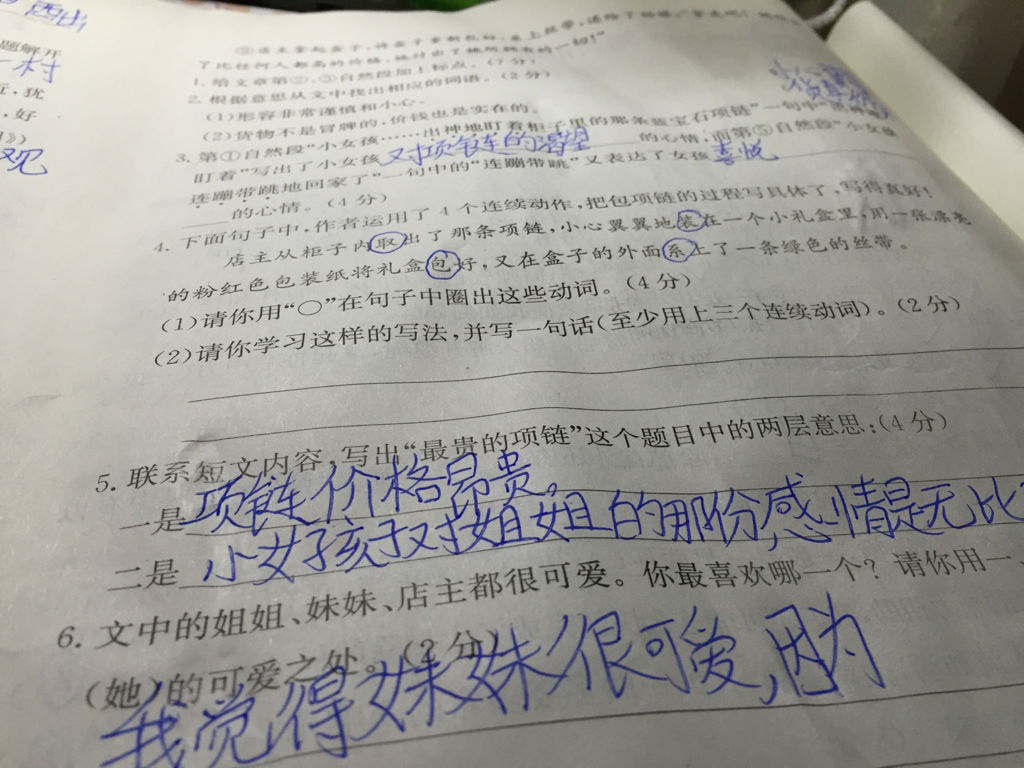 题解开
一村
近,犹
,好
》)
观
西出
③店主拿起盒子,
了比任何人都高的价格,她付出了她所拥有的一切!”
1. 给文章第②、③自然段加上标点。(?分)
2. 根据意思从文中找出相应的词语。(2分)
(1)形容非常谨慎和小心。
(2)货物不是冒牌的,价钱也是实在的。
3. 第①自然段“小女孩……出神地盯着柜子里的那条蓝宝石项链”一句中“出神地
盯着”写出了小女孩对项链的渴望的心情;而第⑤自然段“小女孩
连蹦带跳地回家了”一句中的“连蹦带跳”又表达了女孩喜悦
的心情。(4分)
4. 下面句子中,作者运用了4个连续动作,把包项链的过程写具体了,写得真好!
店主从柜子内取出了那条项链,小心翼翼地装在一个小礼盒里,用一张漂亮
的粉红色包装纸将礼盒包好,又在盒子的外面系上了一条绿色的丝带。
(1)请你用“○”在句子中圈出这些动词。(4分)
(2)请你学习这样的写法,并写一句话(至少用上三个连续动词)。(2分)
5. 联系短文内容,写出“最贵的项链”这个题目中的两层意思:(4分)
一是项链价格昂贵。
二是小女孩对姐姐的那份感情是无比
6. 文中的姐姐、妹妹、店主都很可爱。你最喜欢哪一个?请你用一、
(她)的可爱之处。(2分)
我觉得妹妹很可爱,因为